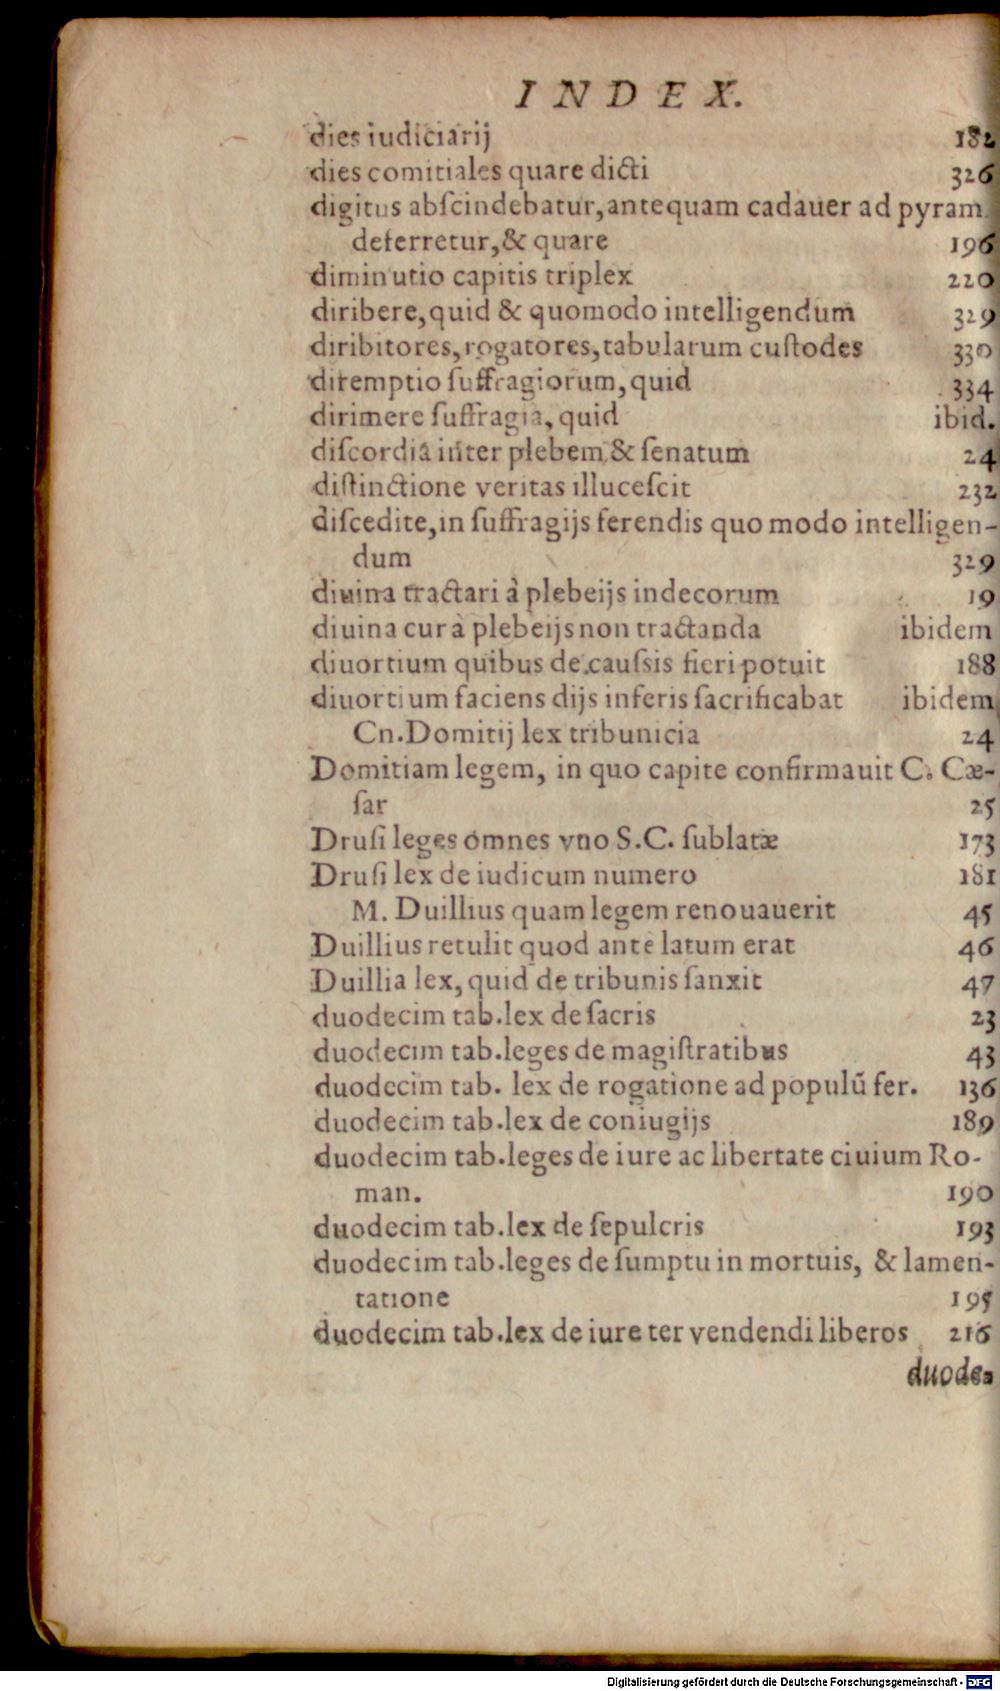 INDEX.
dies iudiciarij 182
dies comitiales quare dicti 326
digitus abſcindebatur, antequam cadauer ad pyram
deferretur, & quare 196
diminutio capitis triplex 220
diribere, quid & quomodo intelligendum 329
diribitores, rogatores, tabularum cuſtodes 330
diremptio ſuffragiorum, quid 334
dirimere ſuffragia, quid ibid.
diſcordia inter plebem & ſenatum 24
diſtinctione veritas illuceſcit 232
diſcedite, in ſuffragijs ferendis quo modo intelligen-
dum 329
diuina tractari à plebeijs indecorum 19
diuina cur à plebeijs non tractanda ibidem
diuortium quibus de cauſsis fieri potuit 188
diuortium faciens dijs inferis ſacrificabat ibidem
Cn. Domitij lex tribunicia 24
Domitiam legem, in quo capite confirmauit C. Cæ-
ſar 25
Druſi leges omnes vno S.C. ſublatæ 173
Druſi lex de iudicum numero 181
M. Duillius quam legem renouauerit 45
Duillius retulit quod ante latum erat 46
Duillia lex, quid de tribunis ſanxit 47
duodecim tab. lex de ſacris 23
duodecim tab. leges de magiſtratibus 43
duodecim tab. lex de rogatione ad populū fer. 136
duodecim tab. lex de coniugijs 189
duodecim tab. leges de iure ac libertate ciuium Ro-
man. 190
duodecim tab. lex de ſepulcris 193
duodecim tab. leges de ſumptu in mortuis, & lamen-
tatione 195
duodecim tab. lex de iure ter vendendi liberos 216
duode-
Digitalisierung gefördert durch die Deutsche Forschungsgemeinschaft - DFG